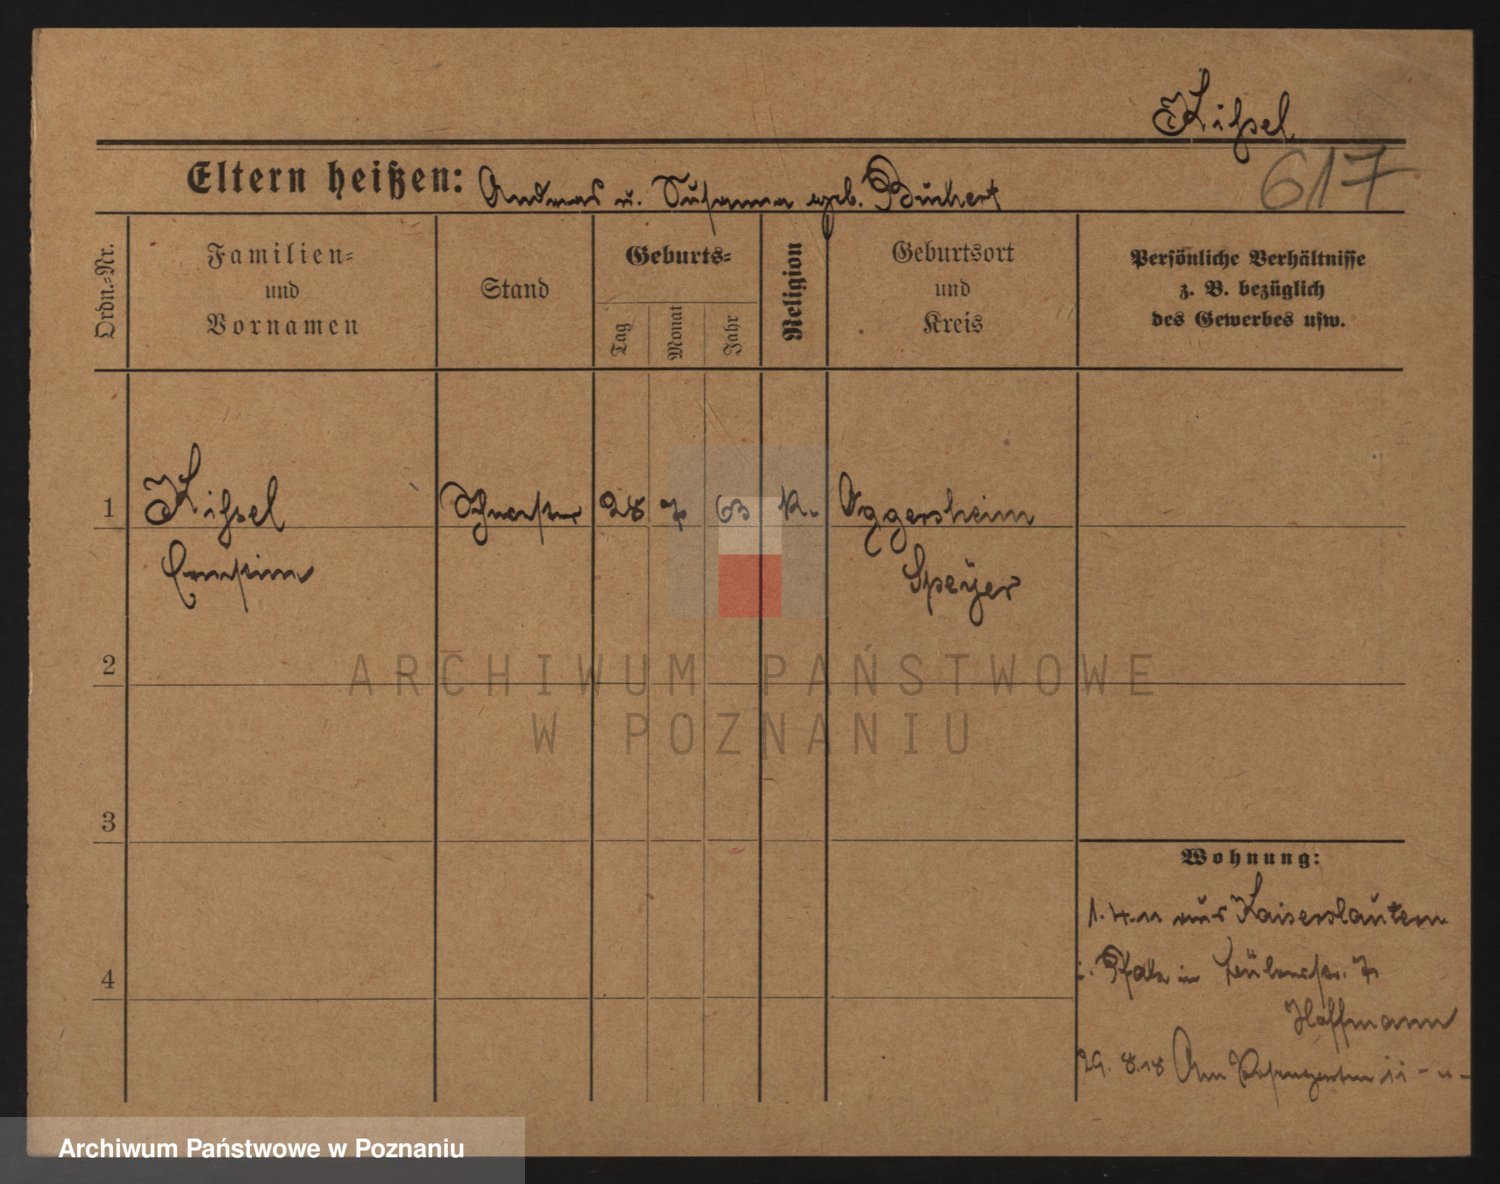 Kissel
617
Eltern heißen: Andreas u. Susanna geb.
Ordn.-Nr.
Familien-
und
Vornamen
Stand
Geburts-
Tag
Monat
Jahr
Religion
Geburtsort
und
Kreis
Persönliche Verhältnisse
z. B. bezüglich
des Gewerbes usw.
1
Kissel
Schwester
28
7
63
k.
Oggersheim
Speyer
2
3
4
Wohnung:
1. 4. 11 aus Kaiserslautern
i. Pfalz in 7
Hoffmann
29. 8. 18 Am Rosengarten 11 - u -
ARCHIWUM PAŃSTWOWE
W POZNANIU
Archiwum Państwowe w Poznaniu